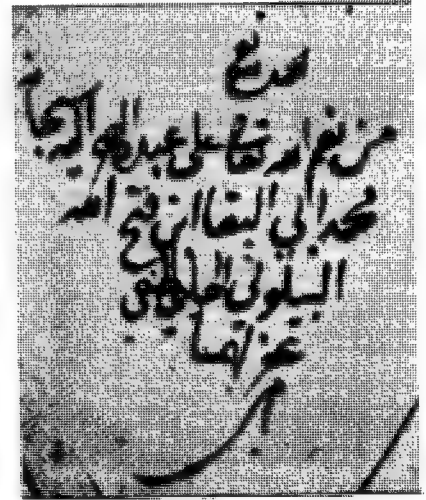 من نعم الله تعالى على عبده الفقير اليه سبحانه
محمد ابي البقا ابن فتح الله
البيلوني الحلبي
غفر لهما